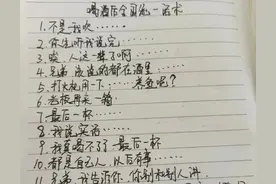 喝酒后全国统一话术
1.不是我吹……
2.你先听我说完
3.哎 人这一辈子啊
4.兄弟 废话的都在酒里
5.打火机用一下……来包呢?
6.老板再来一箱
7.最后一杯……
8.我说实话……
9.我真喝不了了 最后一杯
10.都是自己人 以后有事……
11.兄弟 我告诉你 你别和别人讲